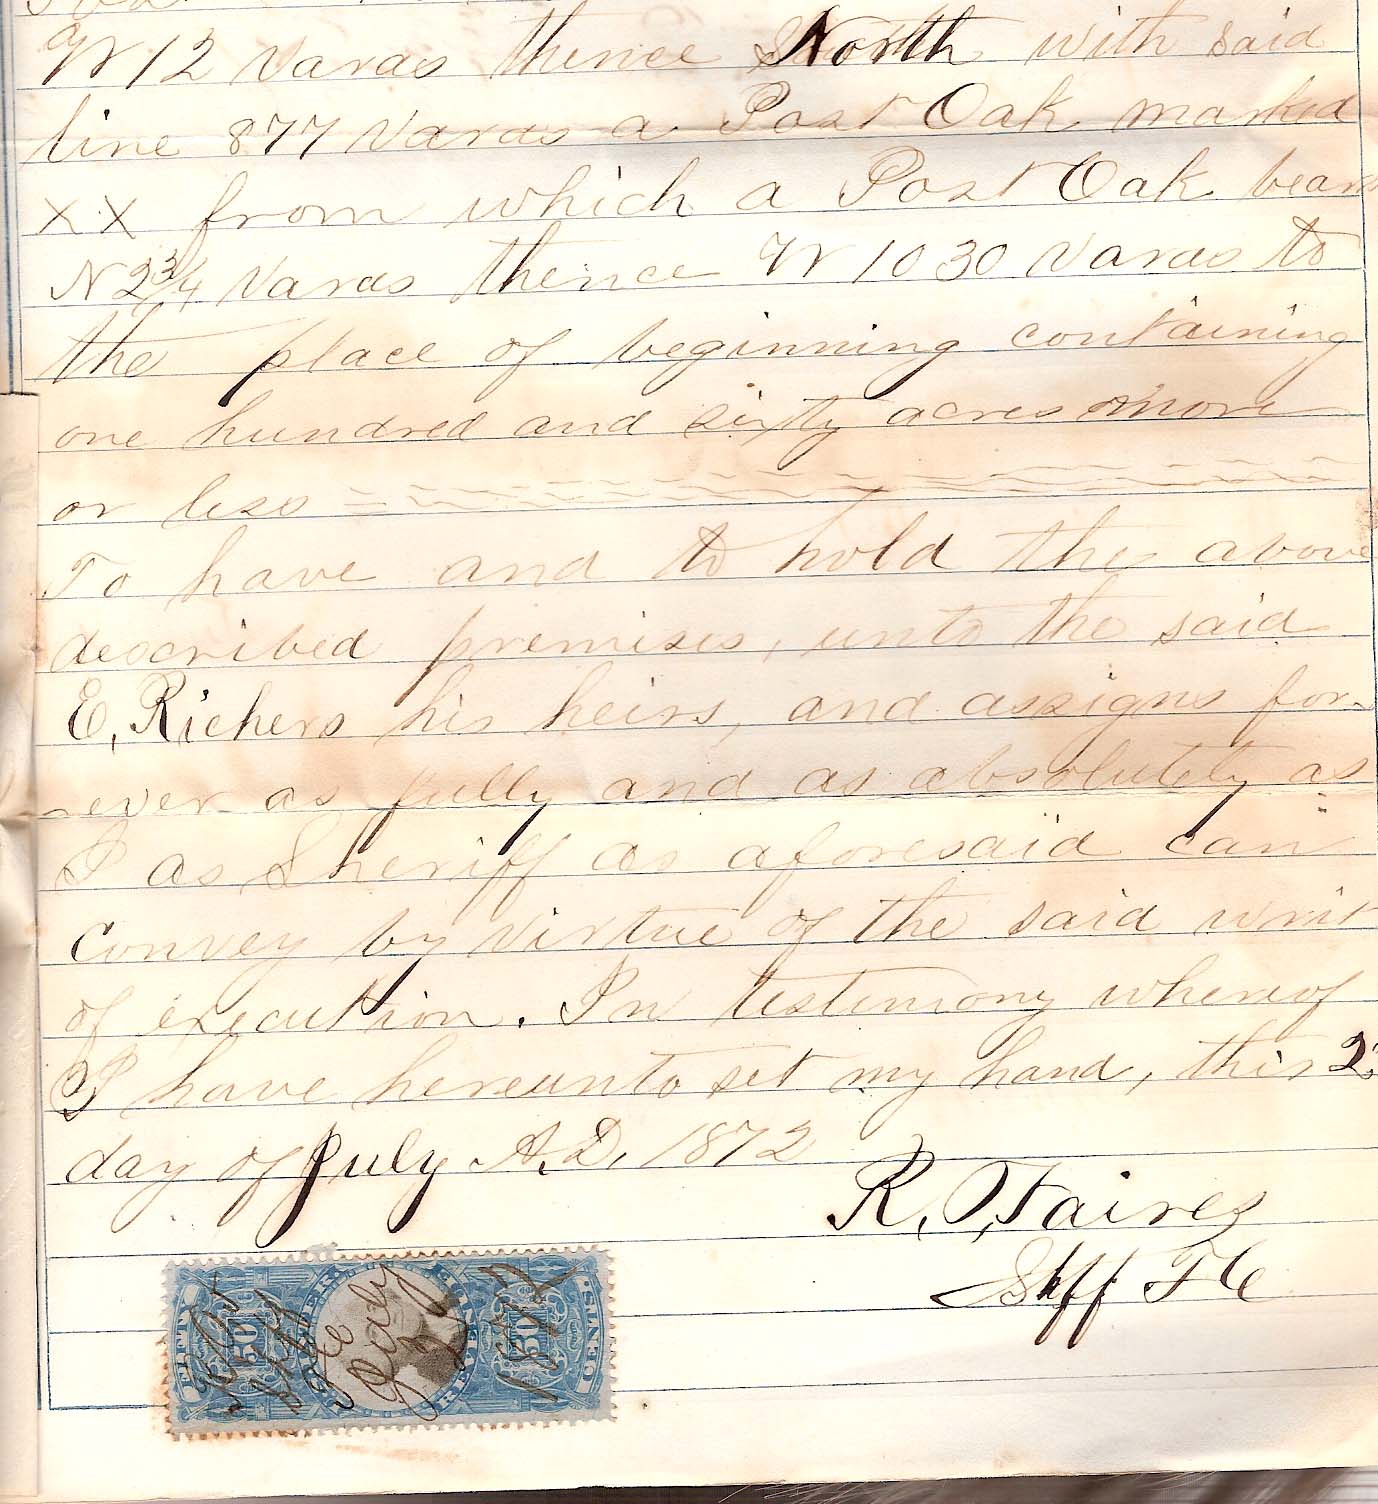 W 12 varas thence North with said
line 877 varas a Post Oak marked
XX from which a Post Oak bears
N 2 3/4 varas thence W 1030 varas to
the place of beginning containing
one hundred and sixty acres more
or less
To have and to hold the above
described premises, unto the said
E. Richers his heirs, and assigns for-
ever as fully and as absolutely as
I as Sheriff as aforesaid can
convey by virtue of the said writ
of execution. In testimony whereof
I have hereunto set my hand, this 2
day of July A.D. 1872
R. Faires
Shff F C
FIFTY INTER REVENUE U.S. CENTS
50 50
July 1872